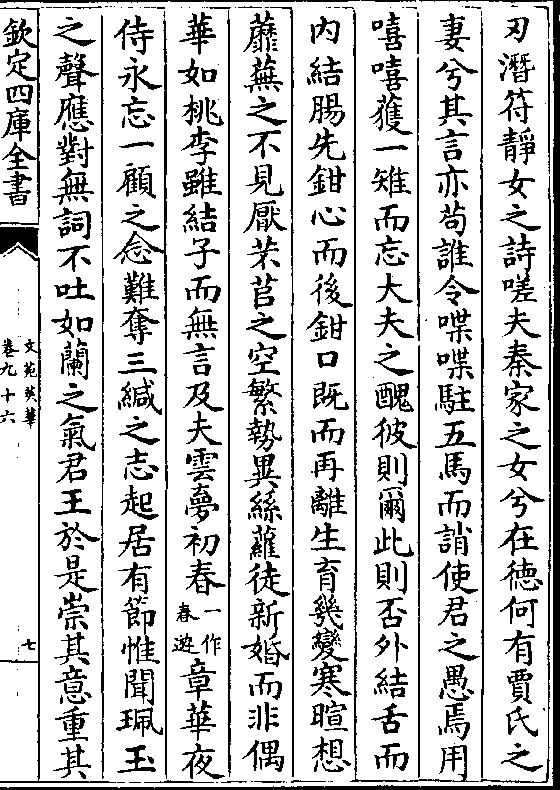 刃潛符靜女之詩嗟夫秦家之女兮在德何有賈氏之
妻兮其言亦苟誰令喋喋駐五馬而誚使君之愚焉用
嘻嘻獲一雉而忘大夫之醜彼則爾此則否外結舌而
内結腸先鉗心而後鉗口既而再離生育幾變寒暄想
蘼蕪之不見厭芣苢之空繁勢異絲蘿徒新婚而非偶
華如桃李雖結子而無言及夫雲夢初春一作春遊章華夜
侍永忘一顧之念難奪三緘之志起居有節惟聞珮玉
之聲應對無詞不吐如蘭之氣君王於是崇其意重其
欽定四庫全書
文苑英華
卷九十六
七